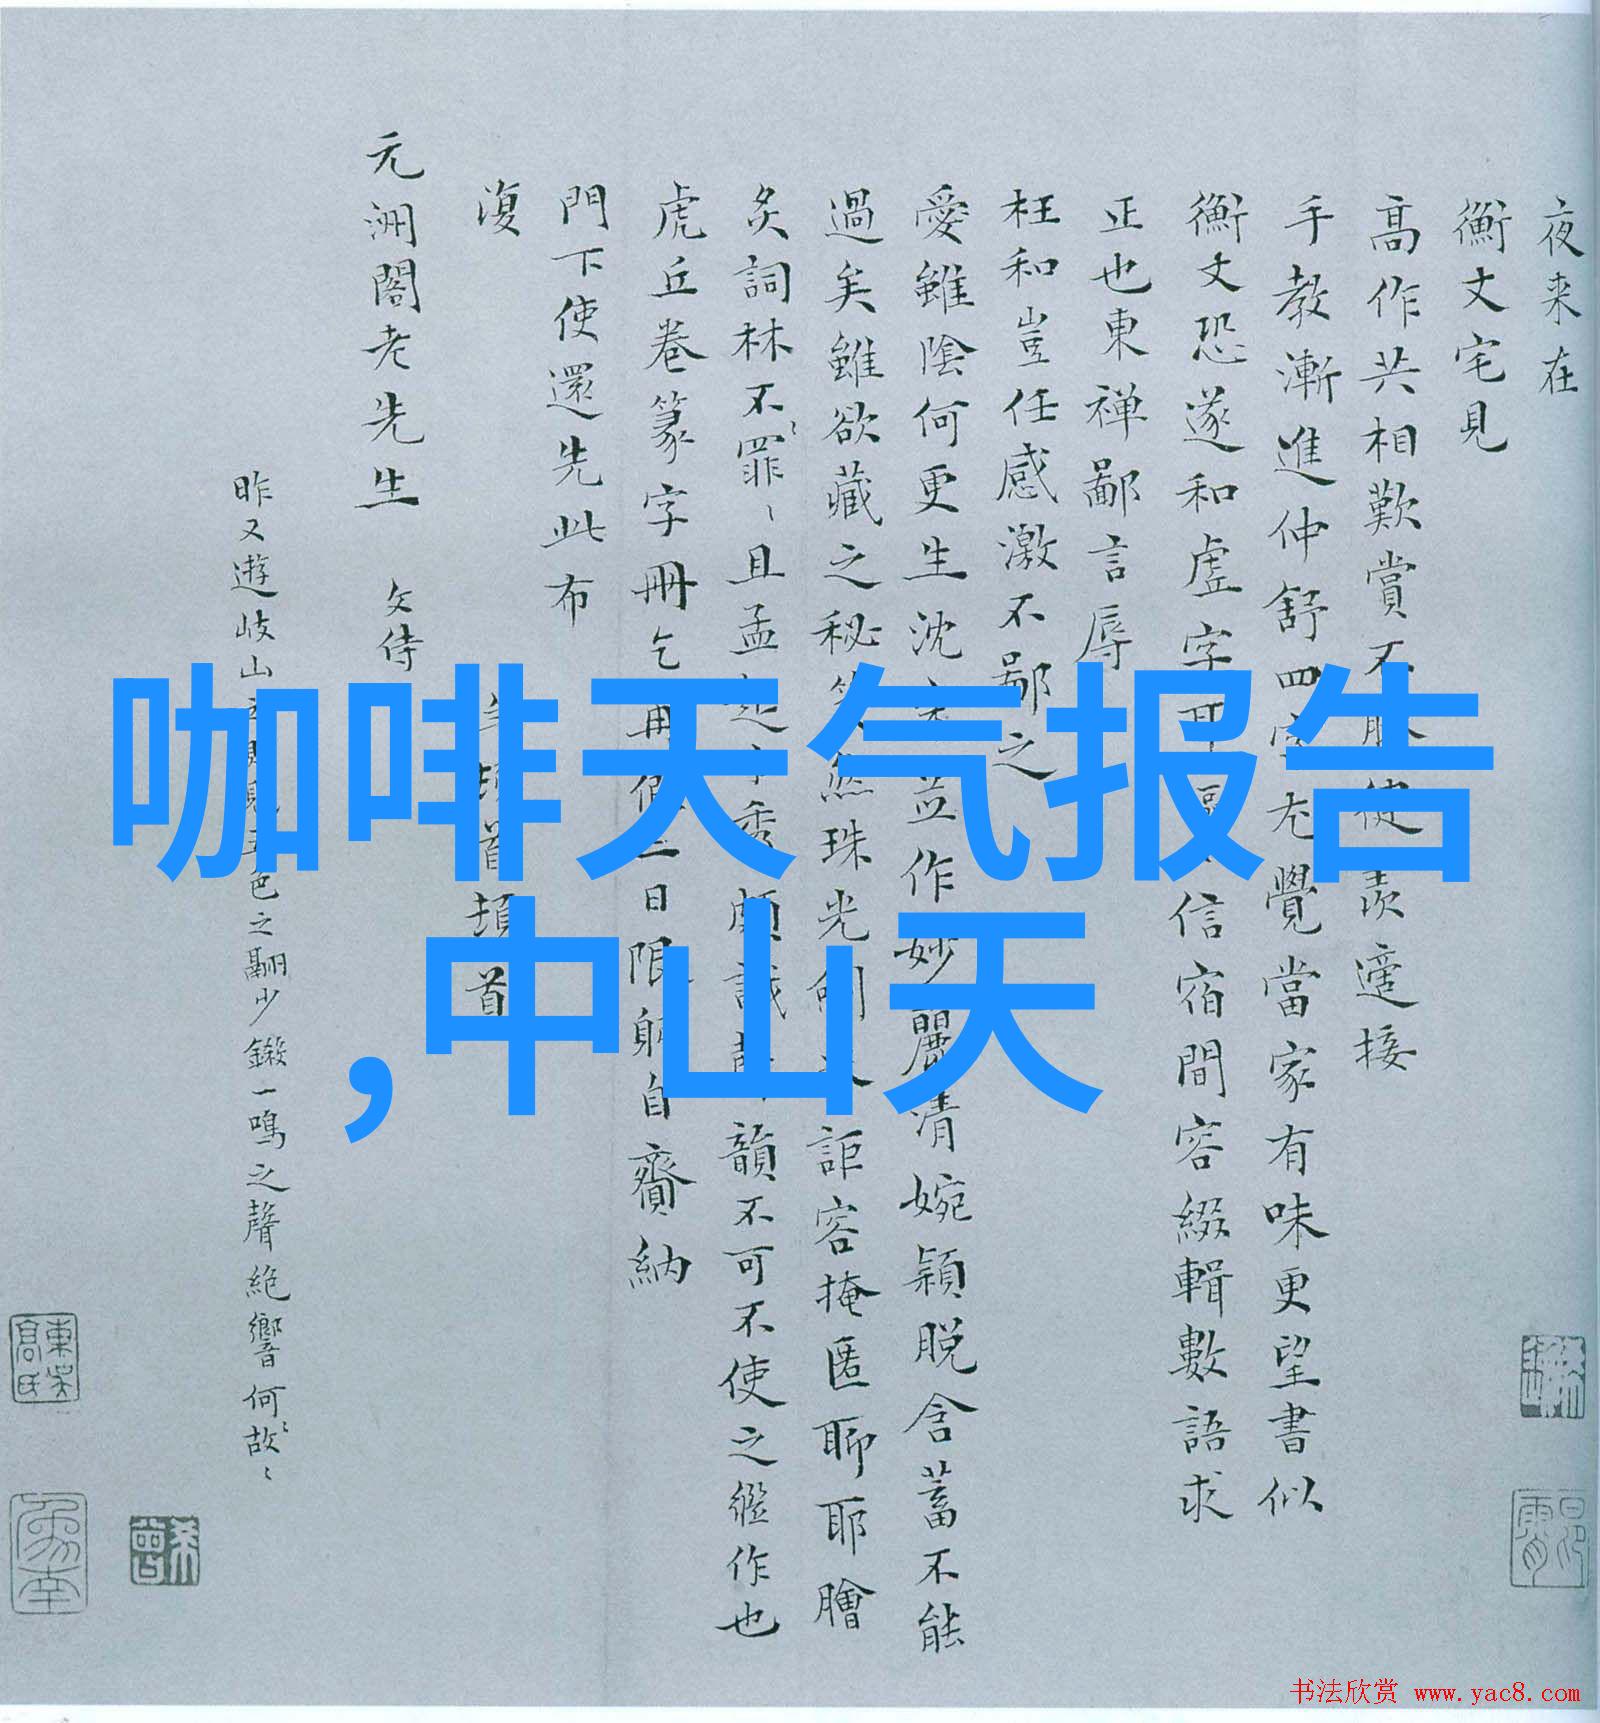 夜来在
衡丈宅見
高作共相歎賞不
羨適接
手教漸進仲舒四
尤覺當家有味更望書似
衡丈恐遂和虚字
信宿間容綴輯數語求
正也東禅鄙言辱
枉和豈任感激不鄙之
愛雖陰何更生沈
並作妙麗清婉穎脱含蓄不能
過矣雖欲藏之秘
然珠光劍
詎容掩匿耶耶膾
炙詞林不罪〻且孟
秀頗識
韻不可不使之繼作也
虎丘卷篆字冊乞再假一日限躬自齎納
門下使還先此布
復
首頓首
元洲閣老先生 文侍
昨又遊岐山
色之翮少鎩一鳴之聲絶響何故〻
咖啡天气报告
,中山天
東吴高氏
书法欣赏 www.yac8.com